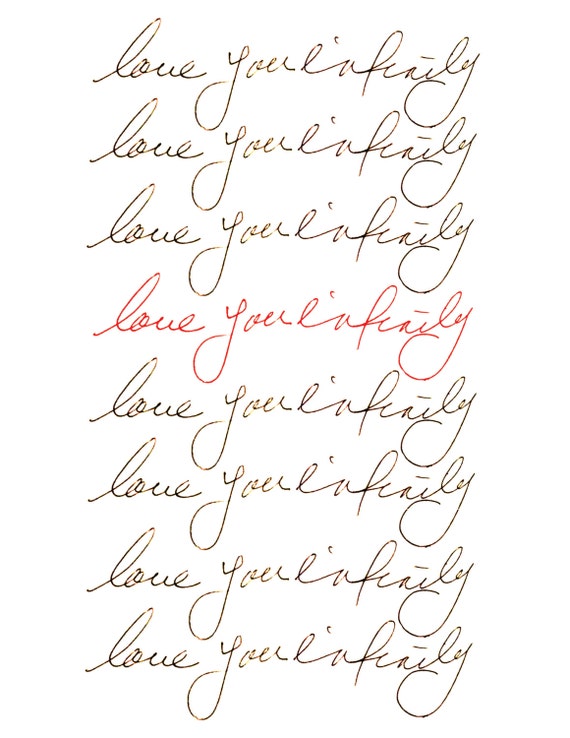 love you infinity
love you infinity
love you infinity
love you infinity
love you infinity
love you infinity
love you infinity
love you infinity